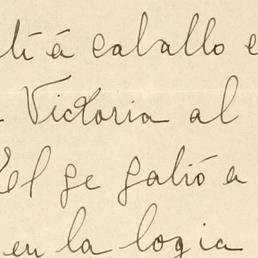 lí á caballo e
Victoria al
El ge galió a
en la logia